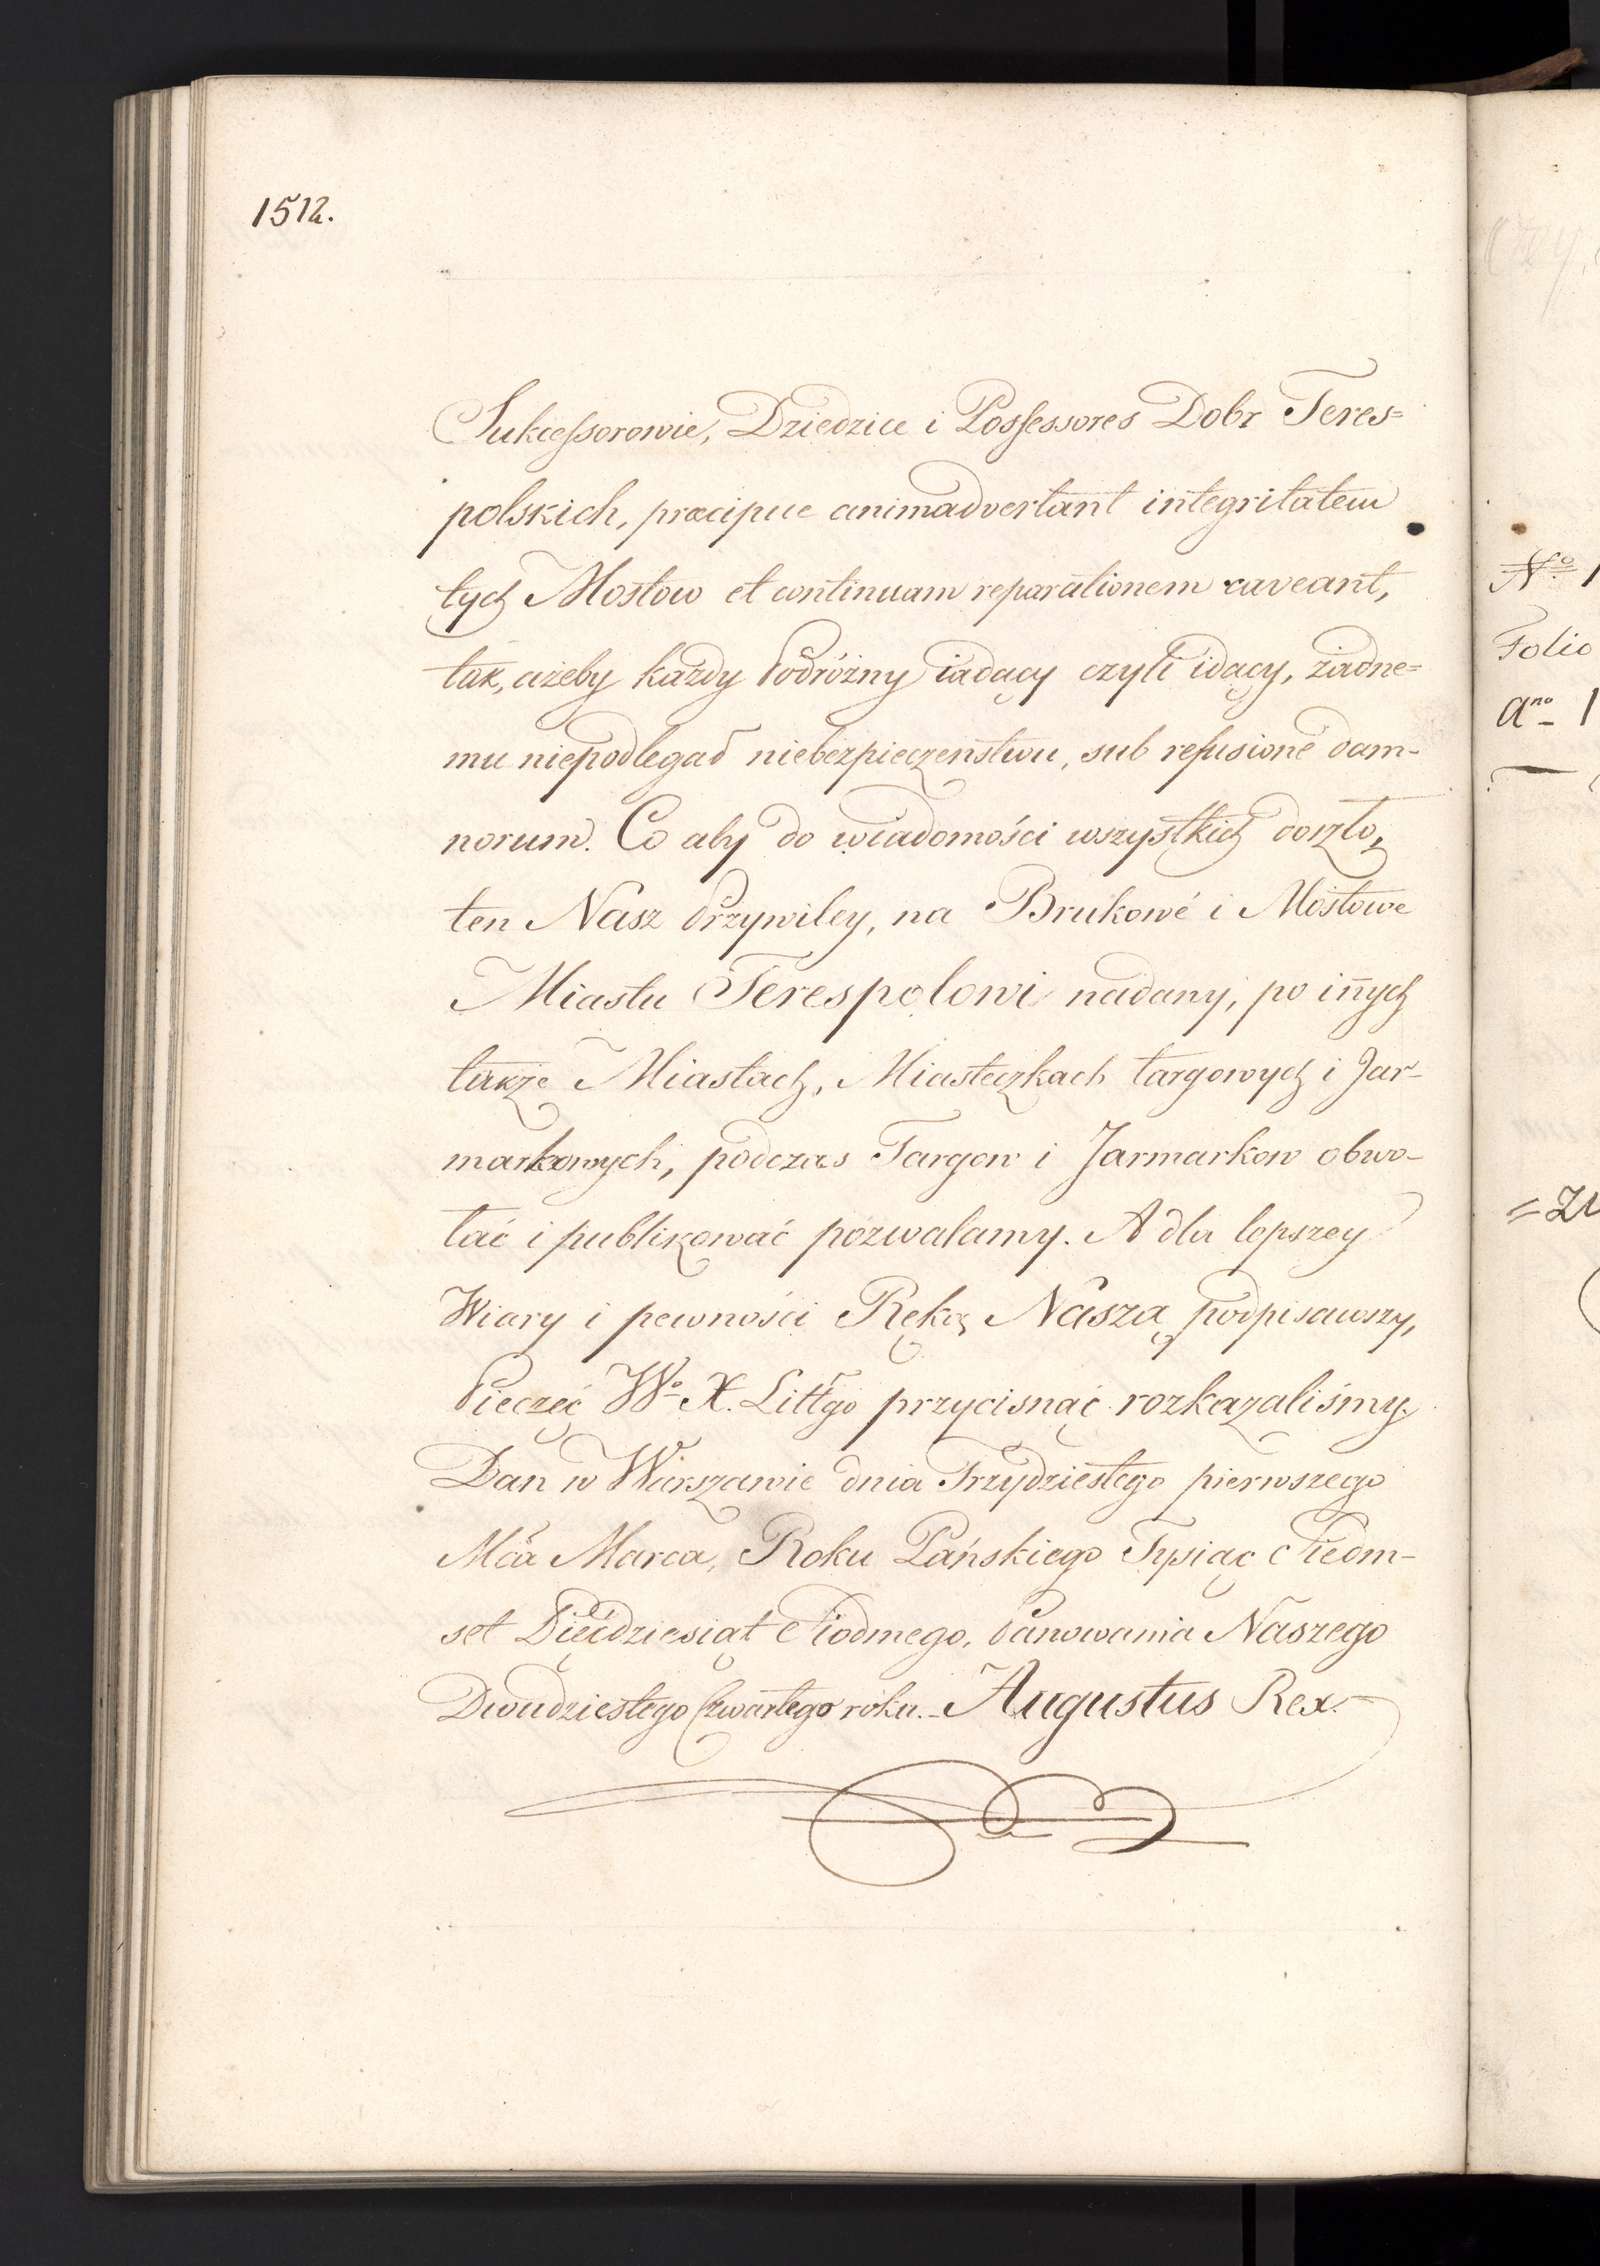 1512.
Sukcessorowie, Dziedzice i Possessores Dobr Teres=
polskich, præcipue animadvertant integritatem
tych Mostow et continuam reparationem caveant,
tak, ażeby każdy Podróżny iadący czyli idący, żadne=
mu niepodlegał niebezpieczeństwu, sub refusione dam-
norum. Co aby do wiadomości wszystkich doszło,
ten Nasz Przywiley, na Brukowé i Mostowe
Miastu Terespolowi nadany, po iñych
także Miastach, Miasteczkach targowych i Jar-
markowych, podczas Targow i Jarmarkow obwo-
łać i publikować pozwalamy. A dla lepszey
Wiary i pewności Ręką Naszą podpisawszy,
Pieczęć Wº X. Littgo przycisnąć rozkazaliśmy.
Dan w Warszawie dnia Trzydziestego pierwszego
Mca Marca, Roku Pańskiego Tysiąc Siedm-
set Pięćdziesiąt Siodmego, Panowania Naszego
Dwudziestego Czwartego roku. - Augustus Rex. -
Nº 1
Folio
Ano 1